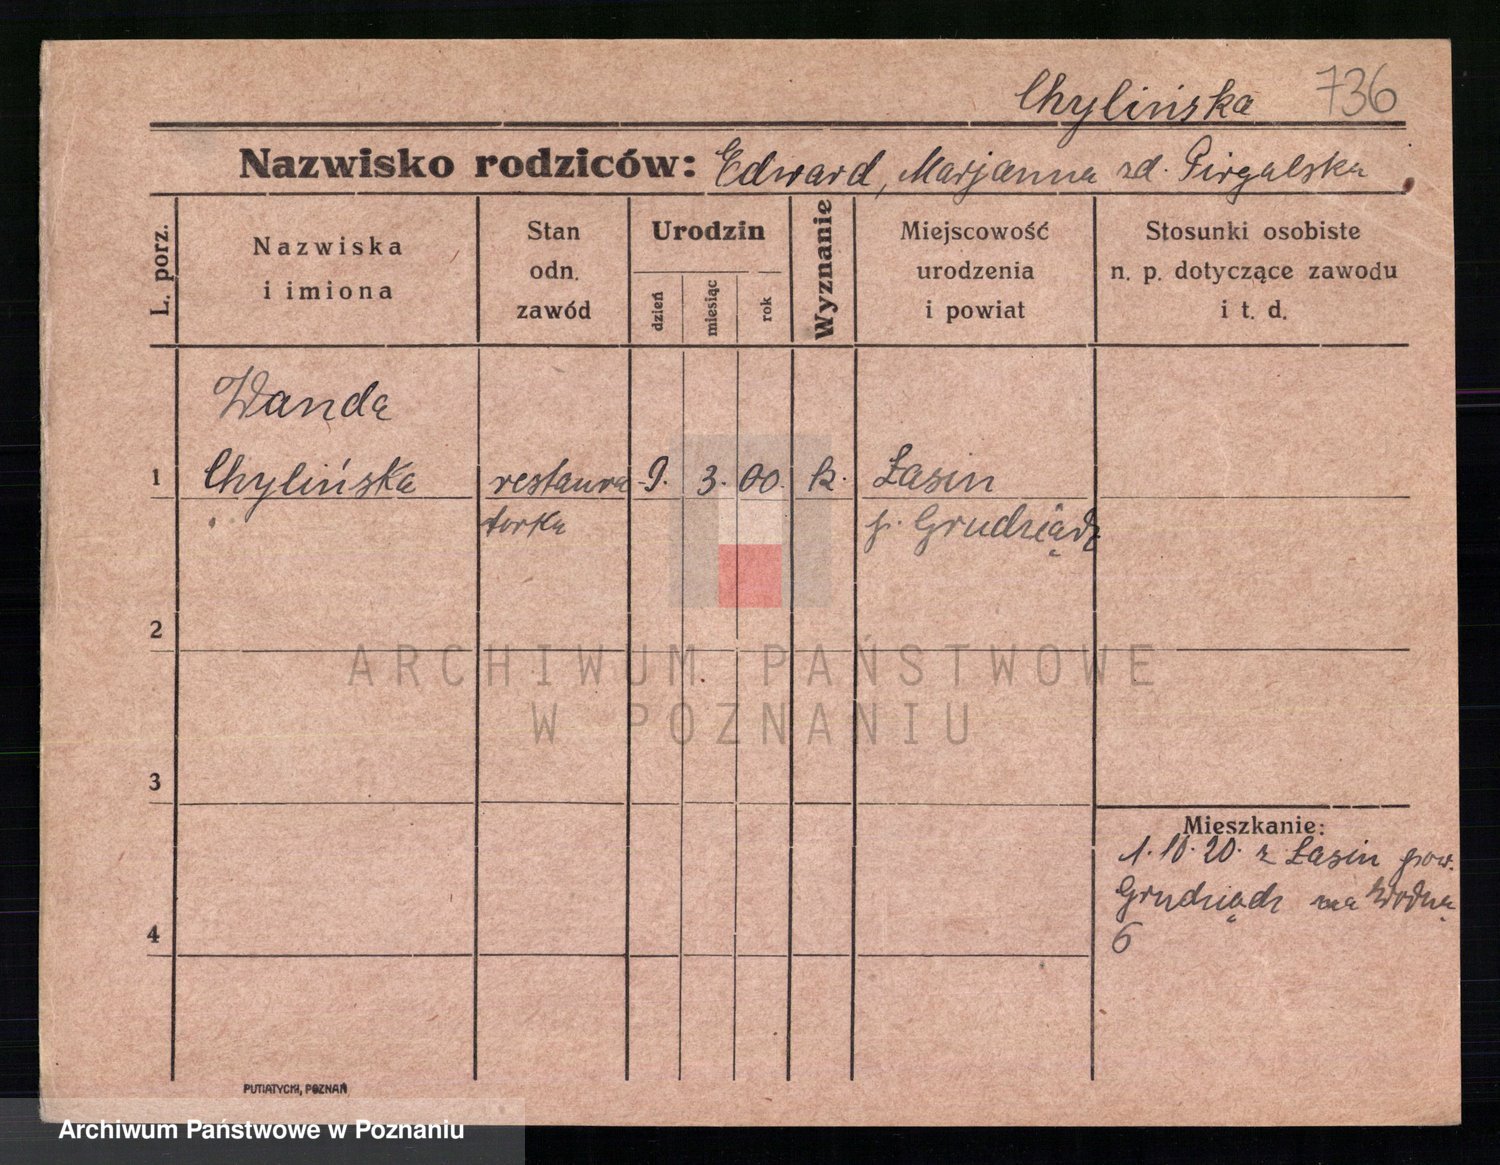 Chylińska 736
Nazwisko rodziców: Edward, Marjanna zd. Pirgalska
L. porz.
Nazwiska
i imiona
Stan
odn.
zawód
Urodzin
dzień
miesiąc
rok
Wyznanie
Miejscowość
urodzenia
i powiat
Stosunki osobiste
n. p. dotyczące zawodu
i t. d.
Wanda
1 Chylińska restaura 9. 3. 00. k. Łasin
torka p. Grudziądz
2
ARCHIWUM PAŃSTWOWE
W POZNANIU
3
Mieszkanie:
1. 10. 20. z Łasin pow.
Grudziądz na Wodną
4
6
PUTIATYCKI, POZNAŃ
Archiwum Państwowe w Poznaniu